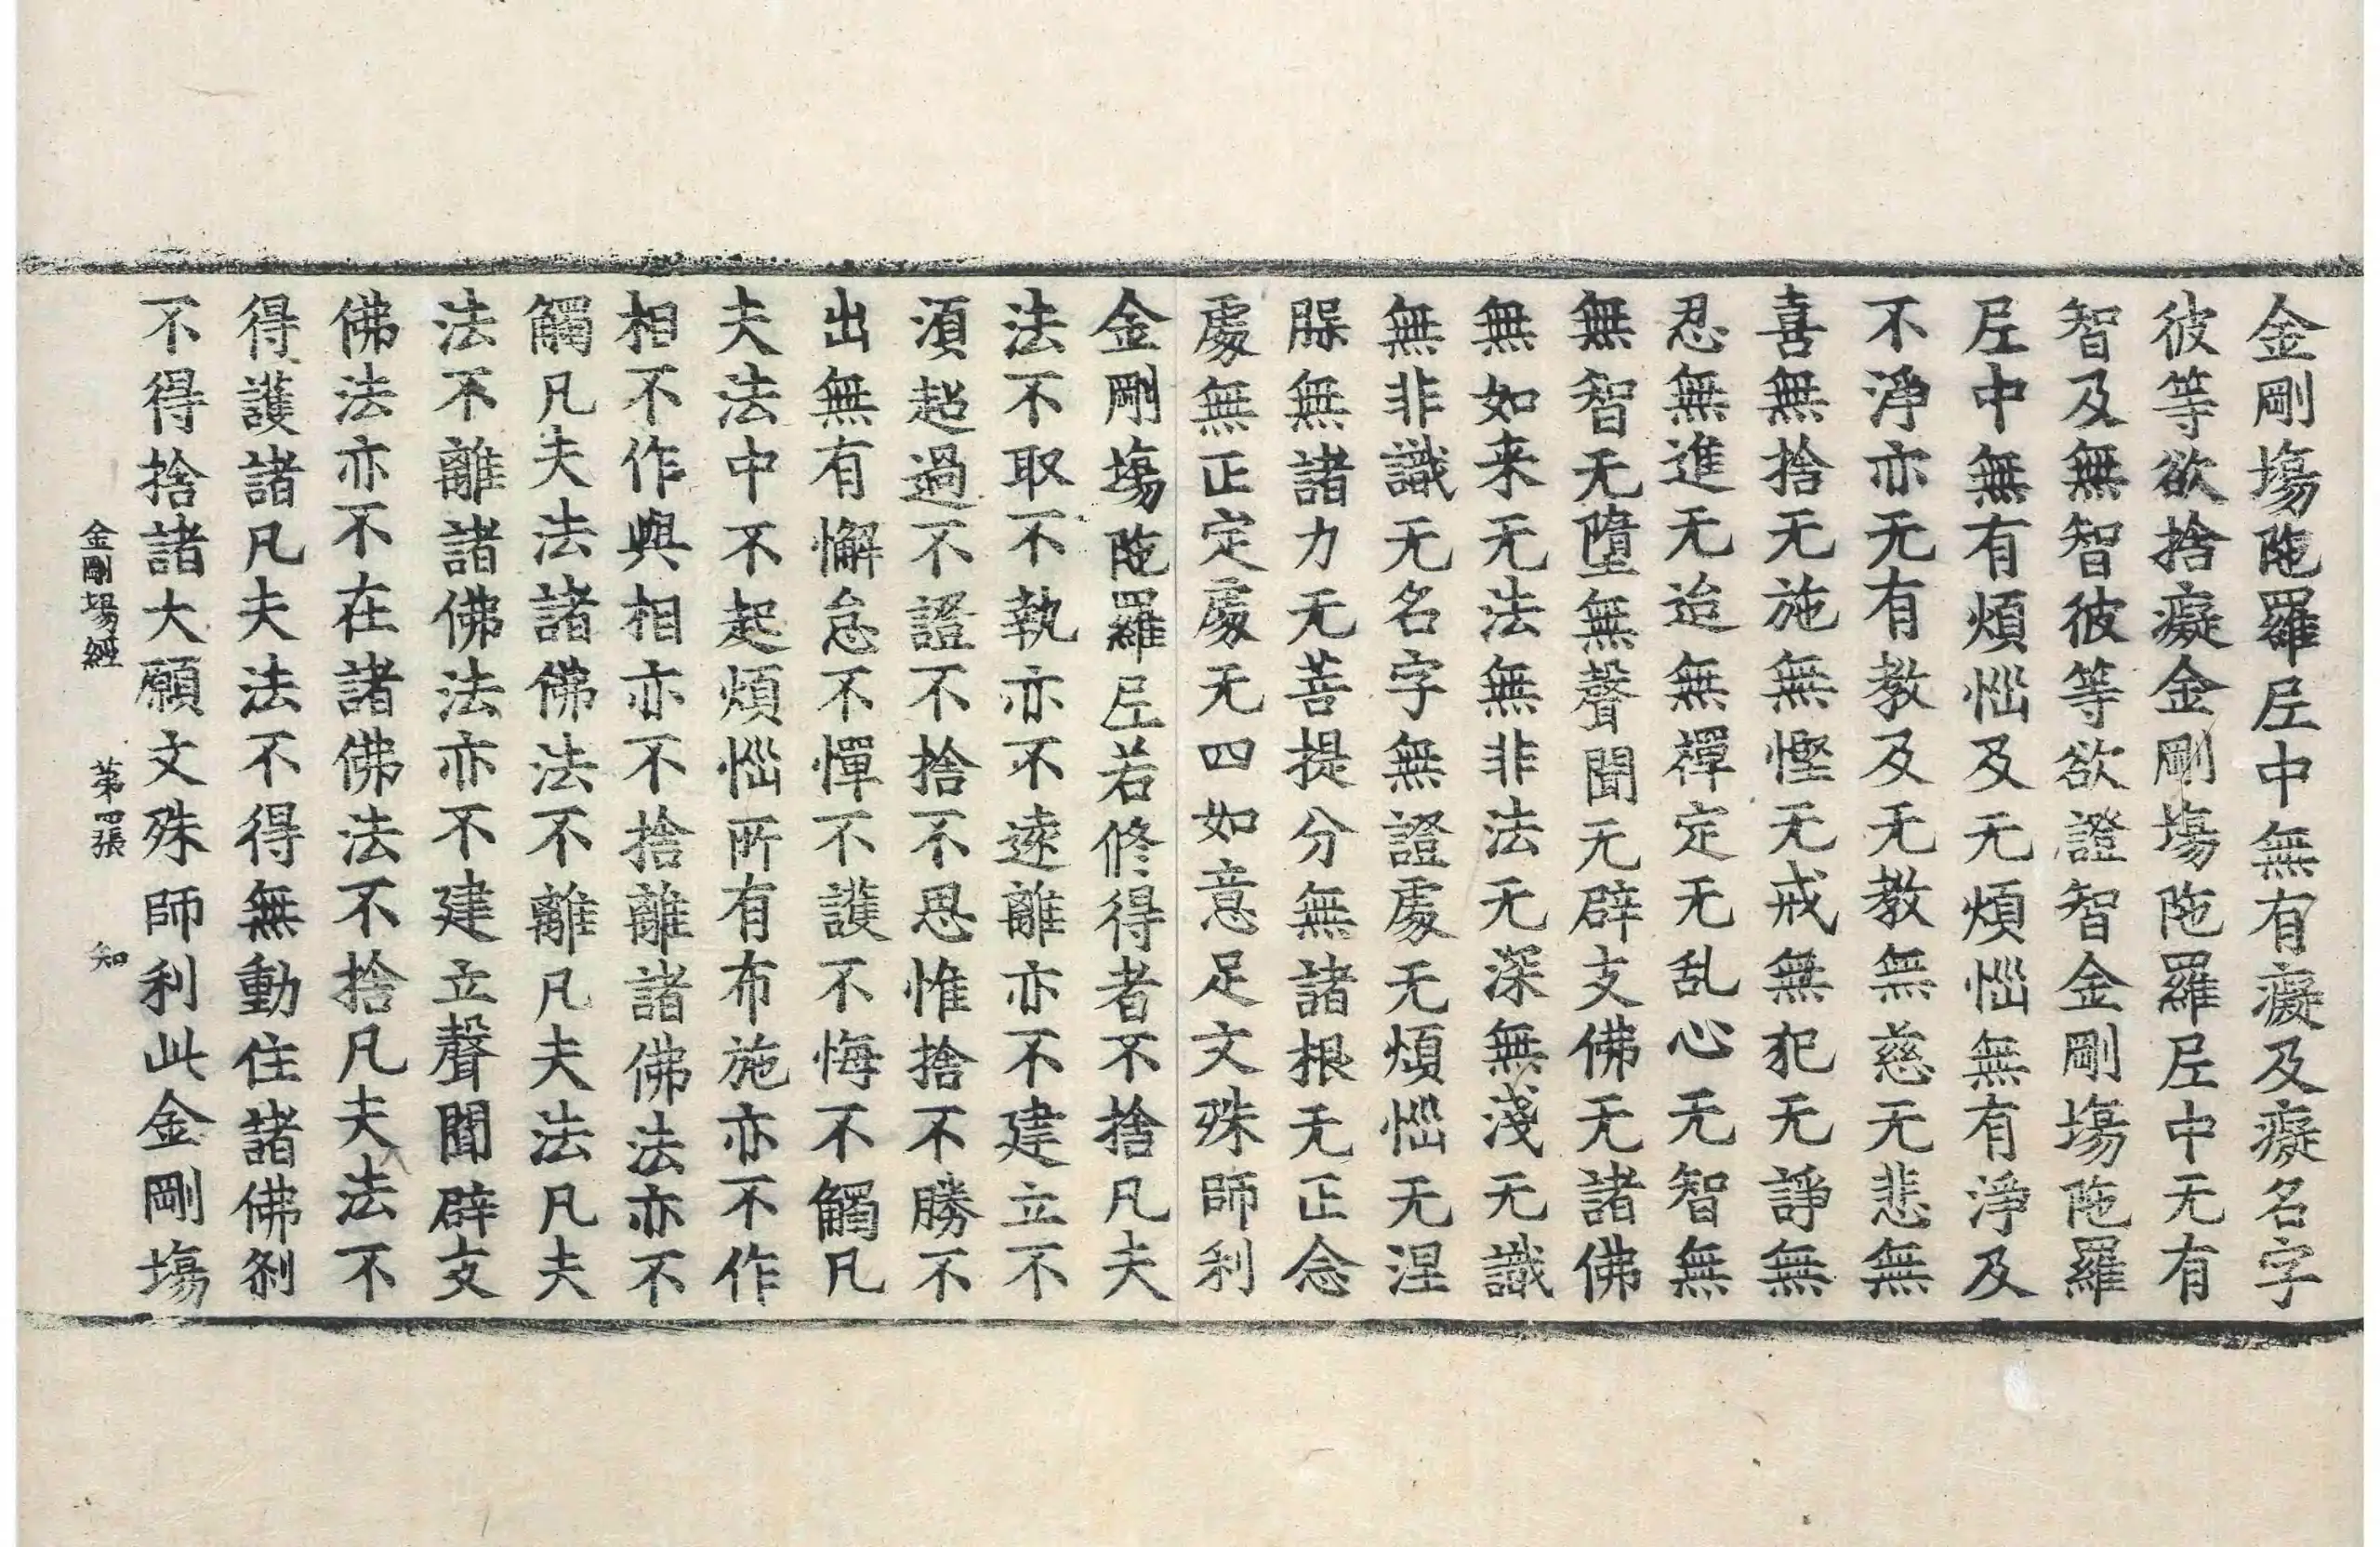 金剛場陁羅𡰱中無有癡及癡名字
彼等欲捨癡金剛場陁羅𡰱中无有
智及無智彼等欲證智金剛場陁羅
𡰱中無有煩惱及无煩惱無有淨及
不淨亦无有教及无教無慈无悲無
喜無捨无施無慳无戒無犯无諍無
忍無進无迨無禪定无乱心无智無
無智无墮無聲聞无辟支佛无諸佛
無如来无法無非法无深無淺无識
無非識无名字無證處无煩惱无涅
脲無諸力无菩提分無諸根无正念
處無正定處无四如意足文殊師利
金剛場陁羅𡰱若修得者不捨凡夫
法不取不執亦不遠離亦不建立不
湏超過不證不捨不思惟捨不勝不
出無有懈怠不憚不護不悔不觸凡
夫法中不起煩惱所有布施亦不作
相不作與相亦不捨離諸佛法亦不
觸凡夫法諸佛法不離凡夫法凡夫
法不離諸佛法亦不建立聲聞辟支
佛法亦不在諸佛法不捨凡夫法不
得護諸凡夫法不得無動住諸佛剎
不得捨諸大願文殊師利此金剛場
金剛場經 第四張 知